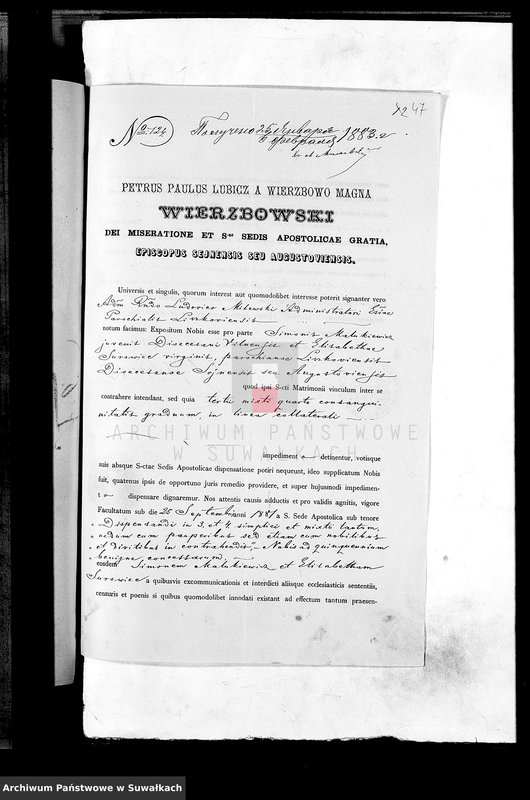 42 47
No 124
Получено 25 Января 1883 г
6 Февраля
PETRUS PAULUS LUBICZ A WIERZBOWO MAGNA
WIERZBOWSKI
DEI MISERATIONE ET Sae SEDIS APOSTOLICAE GRATIA,
EPISCOPUS SEJNENSIS SEU AUGUSTOVIENSIS.
Universis et singulis, quorum interest aut quomodolibet interesse poterit signanter vero
Adm Rndo Ludovico Milewski Administratori Ecclae
Parochialis Liszkoviensis
notum facimus: Expositum Nobis esse pro parte Simonis Malukiewicz
juvenis Dioecesani Vilnensis et Elisabethae
Surowiec virginis, parochianae Liszkoviensis
Dioecesanae Sejnensis seu Augustoviensis
quod ipsi S-cti Matrimonii vinculum inter se
contrahere intendant, sed quia tertii mixti quarto consangui-
nitatis graduum, in linea collaterali
ARCHIWUM PAŃSTWOWE
W SUWAŁKACH
impediment o detinentur, votisque
suis absque S-ctae Sedis Apostolicae dispensatione potiri nequeunt, ideo supplicatum Nobis
fuit, quatenus ipsis de opportuno juris remedio providere, et super hujusmodi impedimen-
o dispensare dignaremur. Nos attentis causis adductis et pro validis agnitis, vigore
Facultatum sub die 25 Septembri anni 1881 a S. Sede Apostolica sub tenore
"Dispensandi in 3. et 4. simplici et mixto tantum,
nedum cum pauperibus sed etiam cum nobilibus
et divitibus in contrahendis", Nobis ad quinquennium
benigne concessarum
eosdem Simonem Malukiewicz et Elisabetham
Surowiec a quibusvis excommunicationis et interdicti aliisque ecclesiasticis sententiis,
censuris et poenis si quibus quomodolibet innodati existant ad effectum tantum praesen-
Archiwum Państwowe w Suwałkach